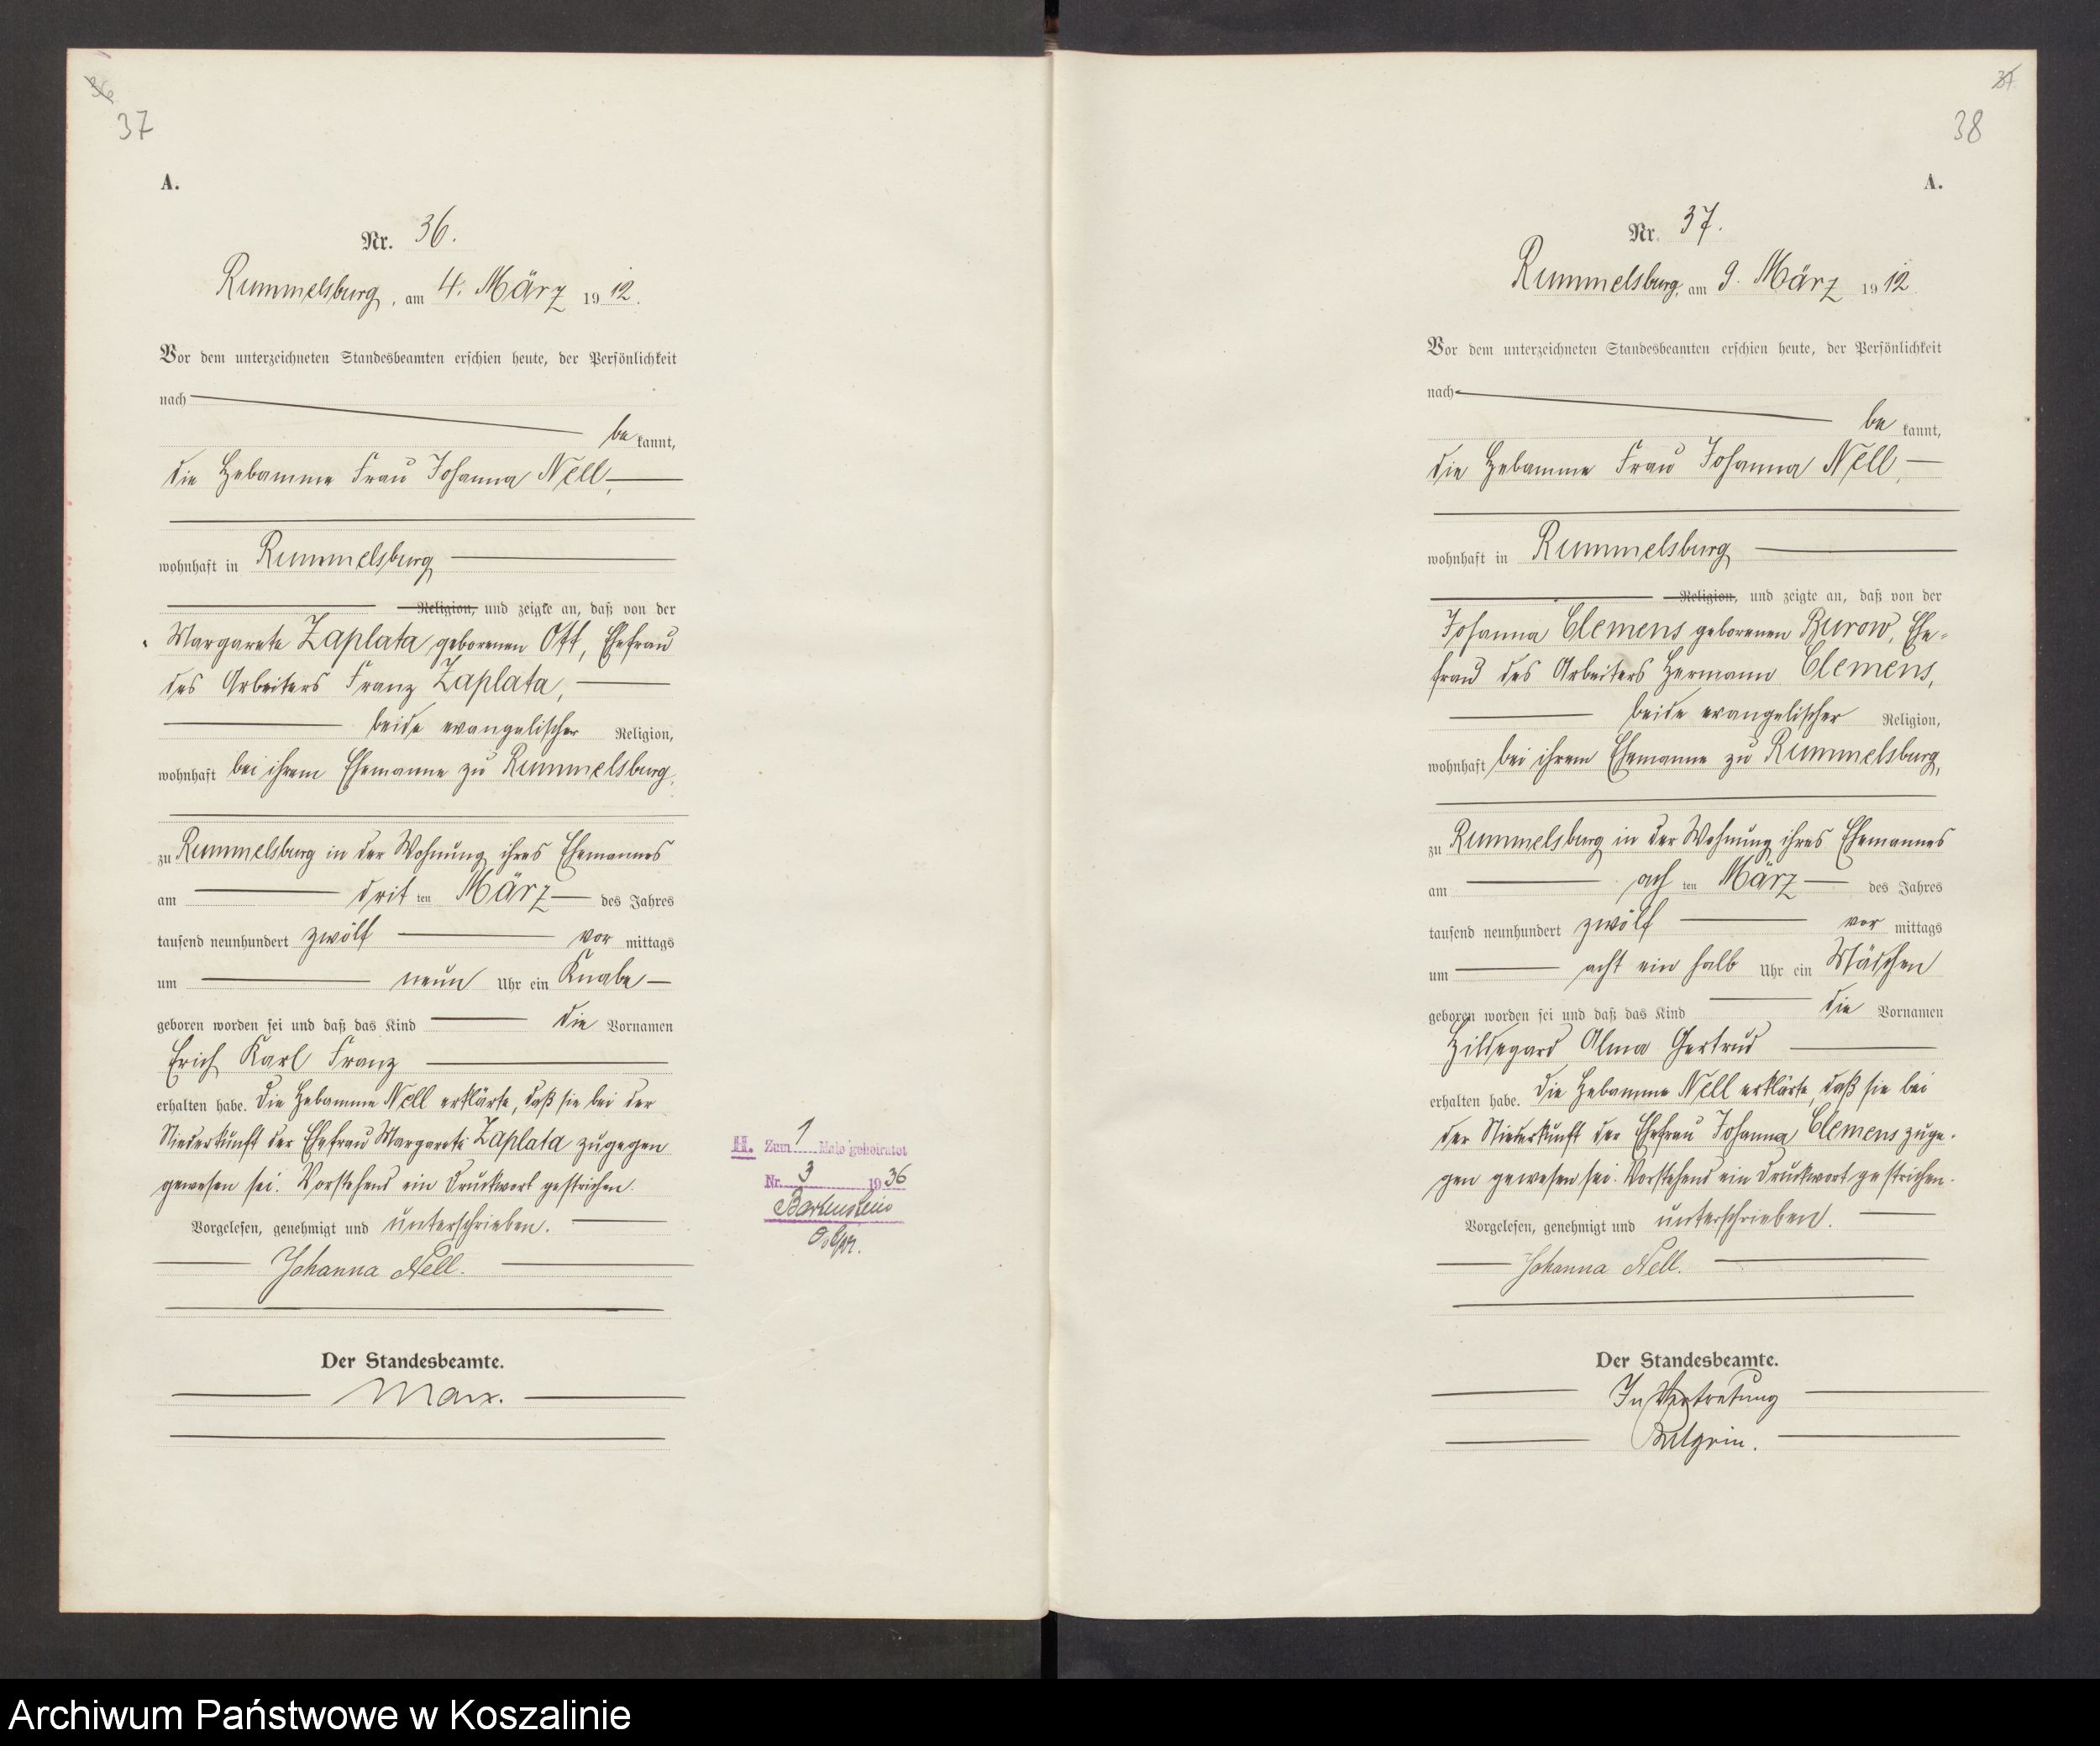 36
37
A.
Nr. 36.
Rummelsburg, am 4. März 1912.
Vor dem unterzeichneten Standesbeamten erschien heute, der Persönlichkeit
nach
be kannt,
die Hebamme Frau Johanna Nell,
wohnhaft in Rummelsburg
Religion, und zeigte an, daß von der
Margarete Zaplata geborenen Ott, Ehefrau
des Arbeiters Franz Zaplata,
beide evangelischer Religion,
wohnhaft bei ihrem Ehemanne zu Rummelsburg,
zu Rummelsburg in der Wohnung ihres Ehemannes
am drit ten März des Jahres
tausend neunhundert zwölf vor mittags
um neun Uhr ein Knabe
geboren worden sei und daß das Kind die Vornamen
Erich Karl Franz
erhalten habe. Die Hebamme Nell erklärte, daß sie bei der
Niederkunft der Ehefrau Margarete Zaplata zugegen
gewesen sei. Vorstehend ein Druckwort gestrichen.
Vorgelesen, genehmigt und unterschrieben.
Johanna Nell.
Der Standesbeamte.
Marx.
H. Zum 1 Male geheiratet
Nr. 3 1936
Bartenstein
37
38
A.
Nr. 37.
Rummelsburg, am 9. März 1912
Vor dem unterzeichneten Standesbeamten erschien heute, der Persönlichkeit
nach
be kannt,
die Hebamme Frau Johanna Nell,
wohnhaft in Rummelsburg
Religion, und zeigte an, daß von der
Johanna Clemens geborenen Burow, Ehe-
frau des Arbeiters Hermann Clemens,
beide evangelischer Religion,
wohnhaft bei ihrem Ehemanne zu Rummelsburg,
zu Rummelsburg in der Wohnung ihres Ehemannes
am ach ten März des Jahres
tausend neunhundert zwölf vor mittags
um acht ein halb Uhr ein Mädchen
geboren worden sei und daß das Kind die Vornamen
Hildegard Alma Gertrud
erhalten habe. Die Hebamme Nell erklärte, daß sie bei
der Niederkunft der Ehefrau Johanna Clemens zuge-
gen gewesen sei. Vorstehend ein Druckwort gestrichen.
Vorgelesen, genehmigt und unterschrieben.
Johanna Nell.
Der Standesbeamte.
In Vertretung
Archiwum Państwowe w Koszalinie